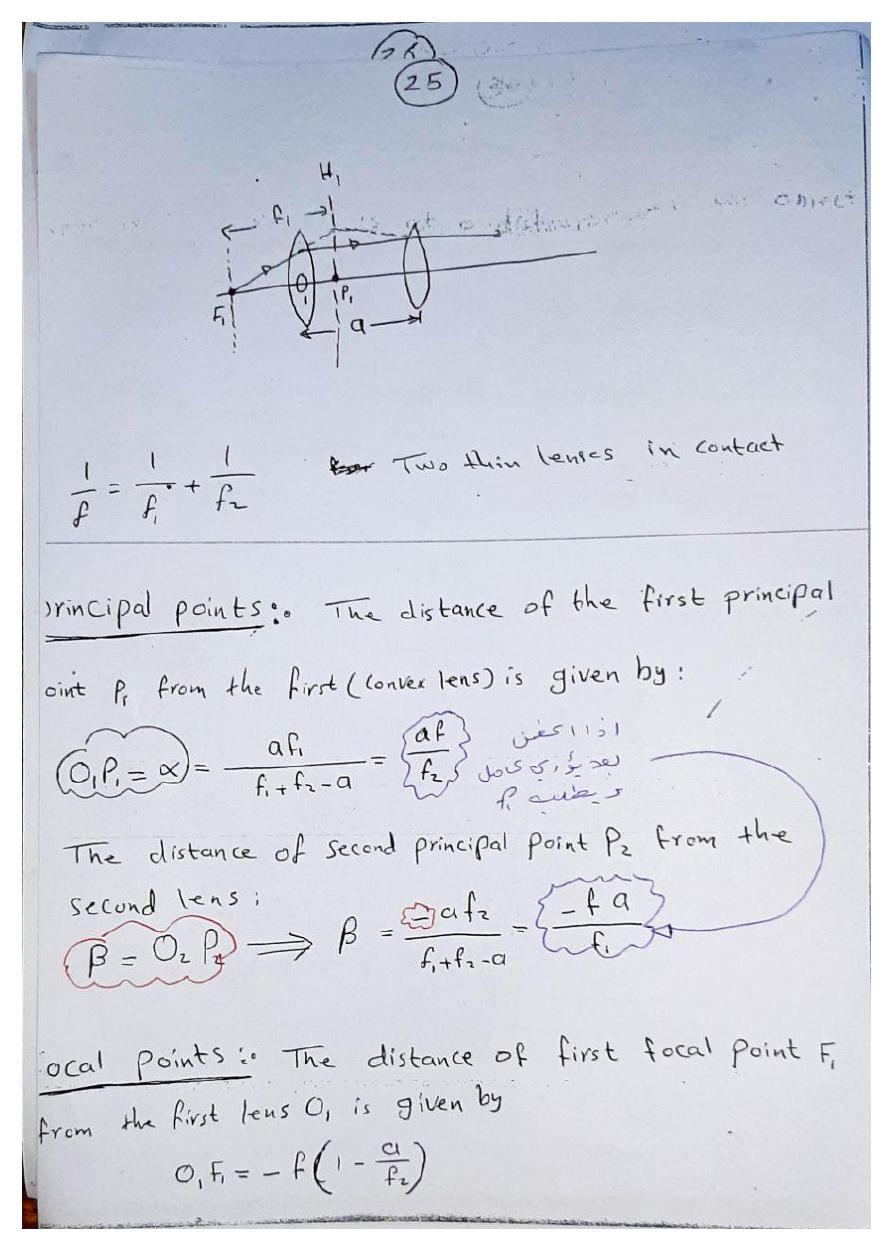 25
H₁
f₁
O₁
P₁
F₁
a
1/f = 1/f₁ + 1/f₂ Two thin lenses in contact
rincipal points:. The distance of the first principal
oint P₁ from the first (Convex lens) is given by:
O₁P₁ = α = af₁/(f₁+f₂-a) = af/f₂
The distance of second principal point P₂ from the
second lens:
β = O₂ P₂ ⟹ β = -af₂/(f₁+f₂-a) = -f a/f₁
ocal points:. The distance of first focal point F₁
from the first lens O₁ is given by
O₁F₁ = -f(1 - a/f₂)